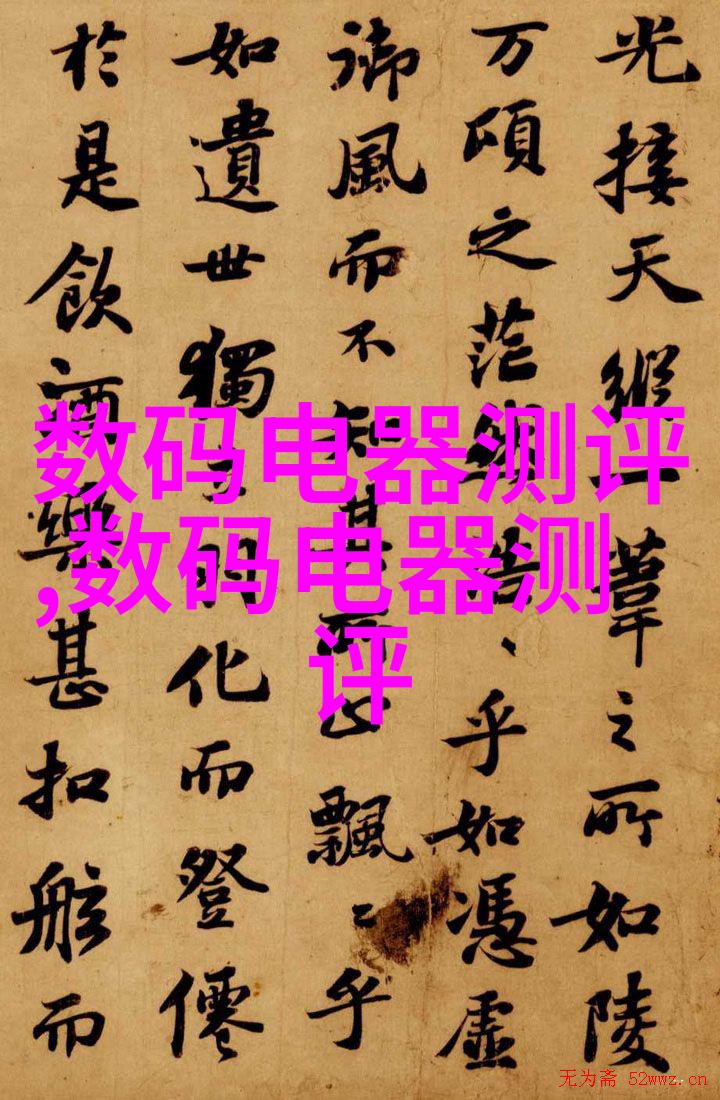 光接天縱一葦之所如陵
万頃之茫然浩〻乎如憑虛
御風而不知其所止飄〻乎
如遺世獨立羽化而登僊
於是飲酒樂甚扣舷而
数码电器测评
,数码电器测
评
无为斋 52wwz.cn